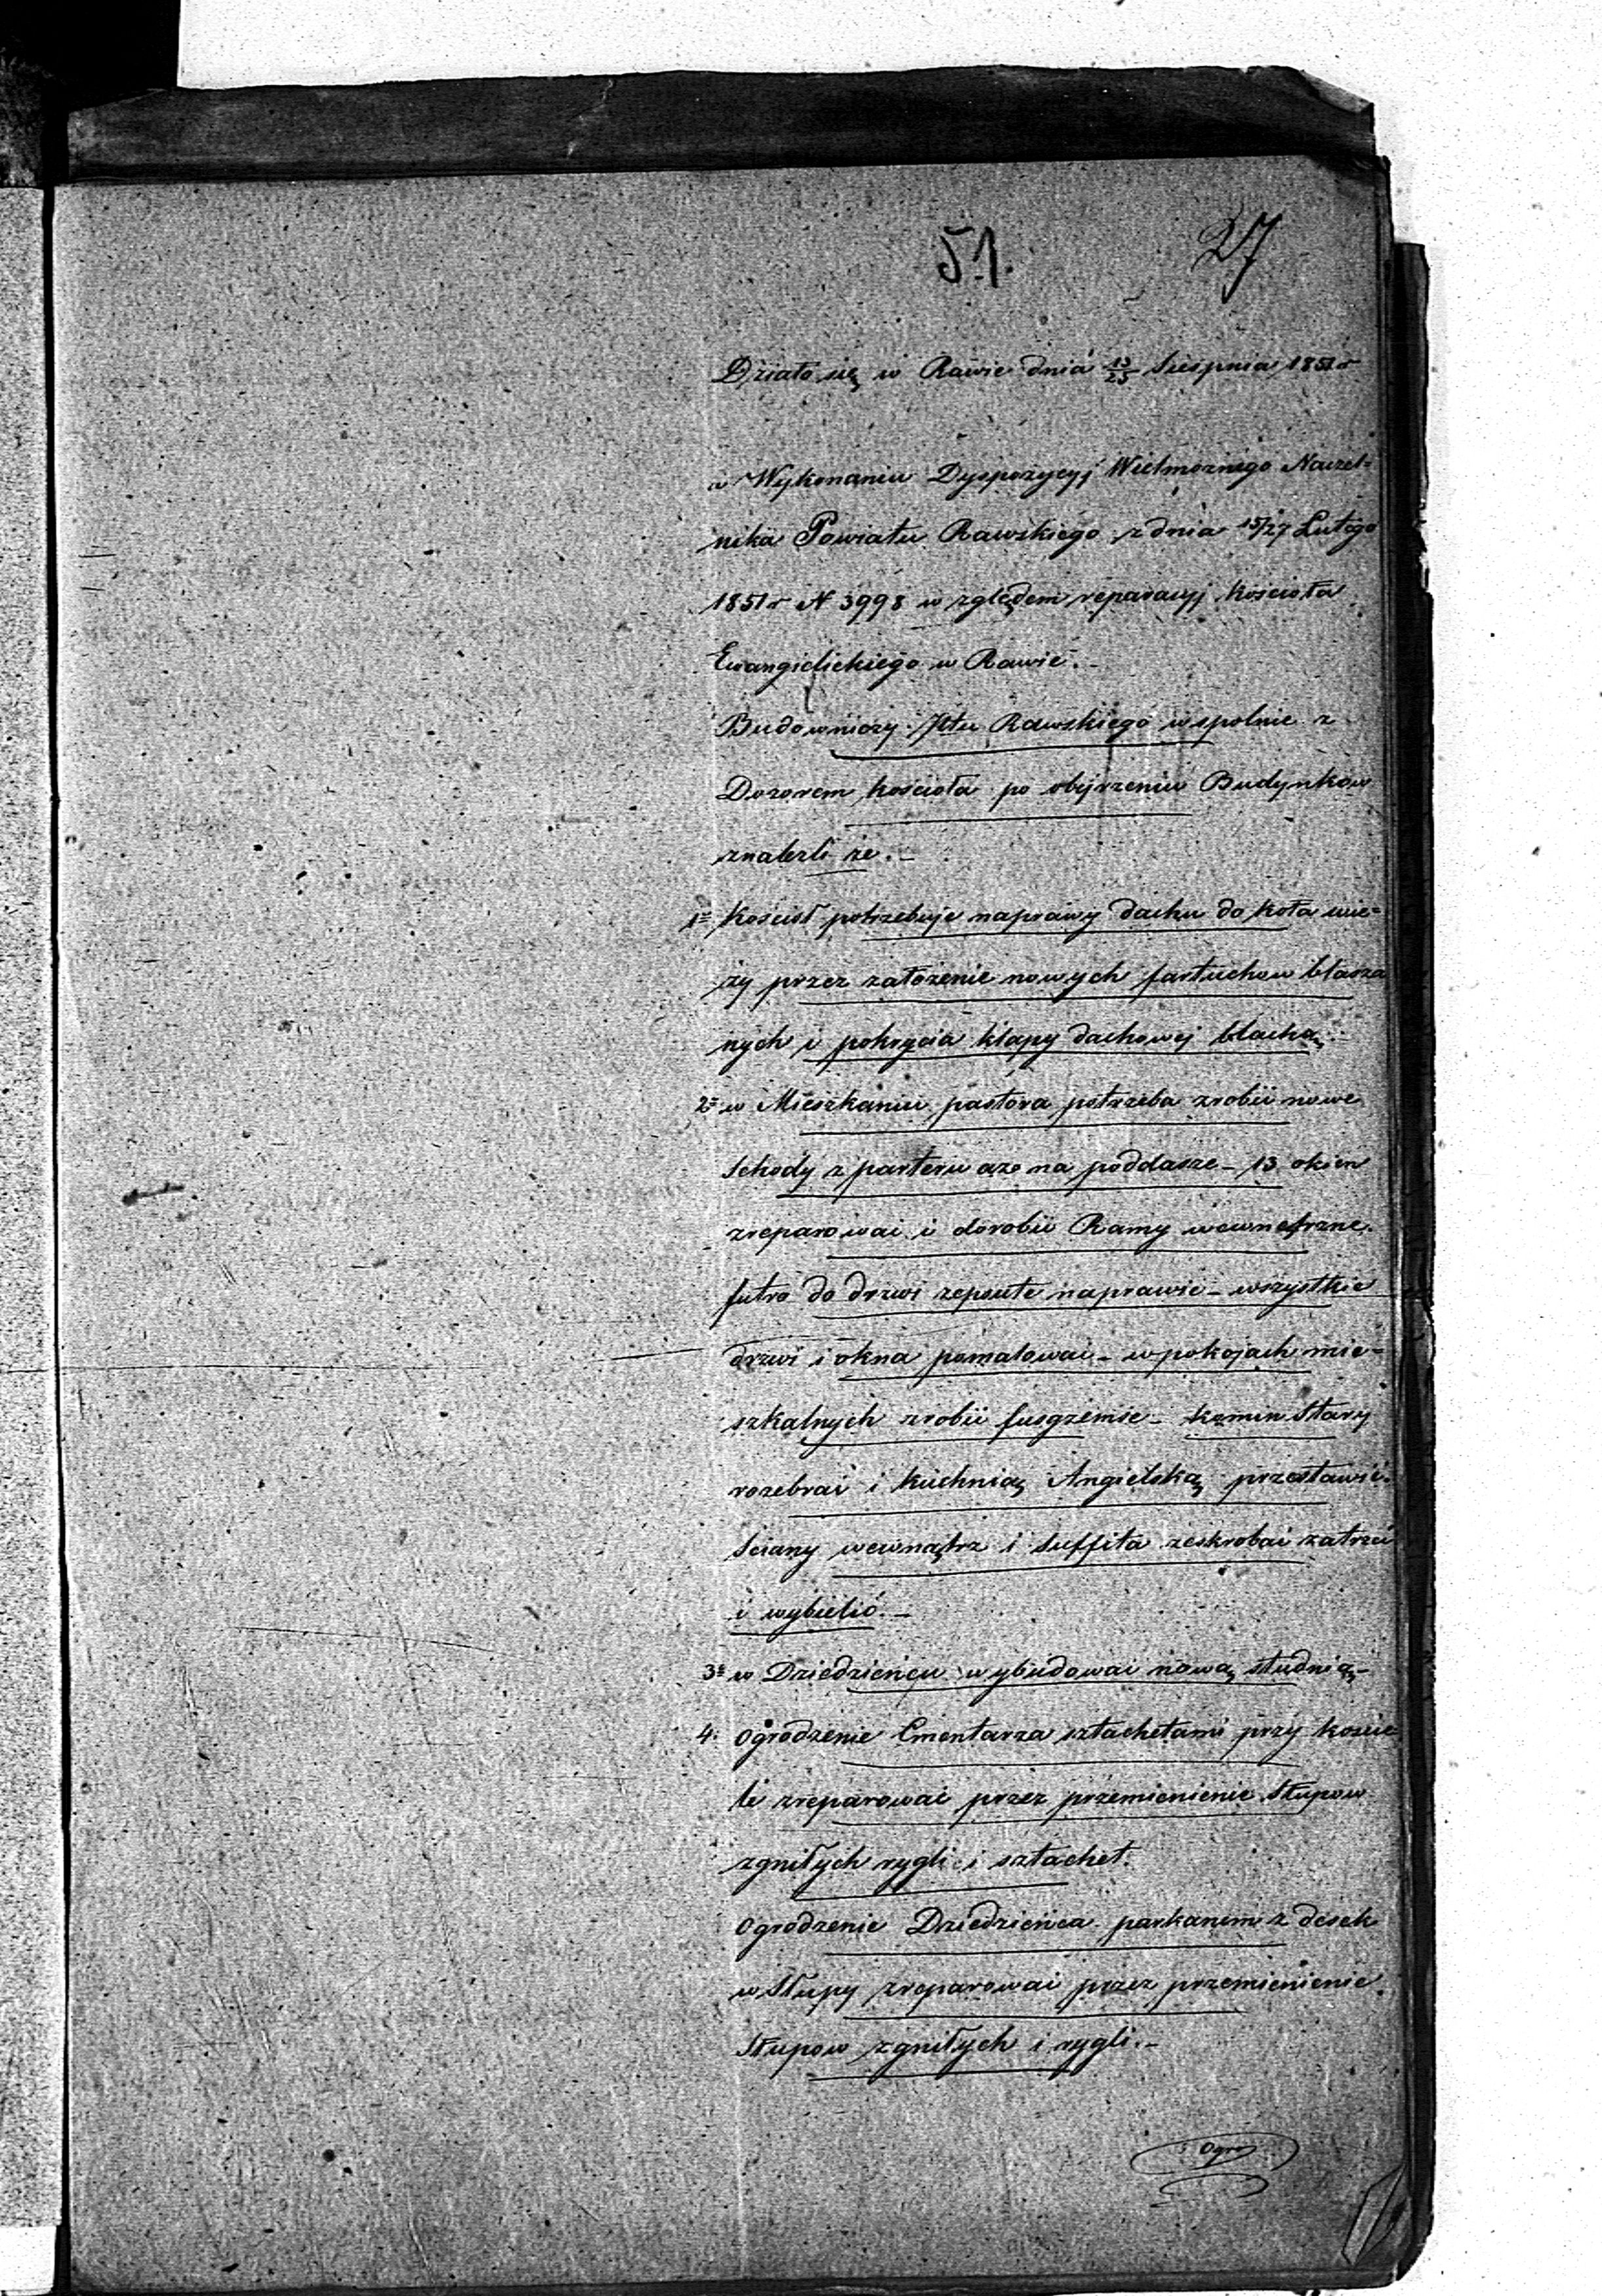 51.
27
Działo się w Rawie dnia 13/25 Sierpnia 1851 r
w Wykonaniu Dyspozycyj Wielmożnego Naczel=
nika Powiatu Rawskiego z dnia 15/27 Lutego
1851 r N 3998 w zględem reparacyj kościoła
Ewangielickiego w Rawie. -
Budowniczy Pttu Rawskiego wspolnie z
Dozorem kościoła po obejrzeniu Budynkow
znalezli że. -
1= Kościoł potrzebuje naprawy dachu do koła wie=
ży przez założenie nowych fartuchow blasza
nych i pokrycia klapy dachowej blachą. -
2= w Mieszkaniu pastora potrzeba zrobić nowe
Schody z parteru aze na poddasze - 13 okien
zreparować i dorobić Ramy wewnętrzne.
futra do drzwi zepsute naprawić - wszystkie
drzwi i okna pomalować - w pokojach mie=
szkalnych zrobić fusgzemse - komin Stary
rozebrać i kuchnią Angielską przestawić.
Sciany wewnątrz i Suffita zeskrobać zatrzeć
i wybielić. -
3= w Dziedzieńcu wybudować nową studnią -
4. Ogrodzenie Cmentarza sztachetami przy koście
le zreparować przez przemienienie Słupow
zgniłych rygli i sztachet.
Ogrodzenie Dziedzieńca parkanem z desek
w Słupy zreparować przez przemienienie
Słupow zgniłych i rygli. -
Ogro